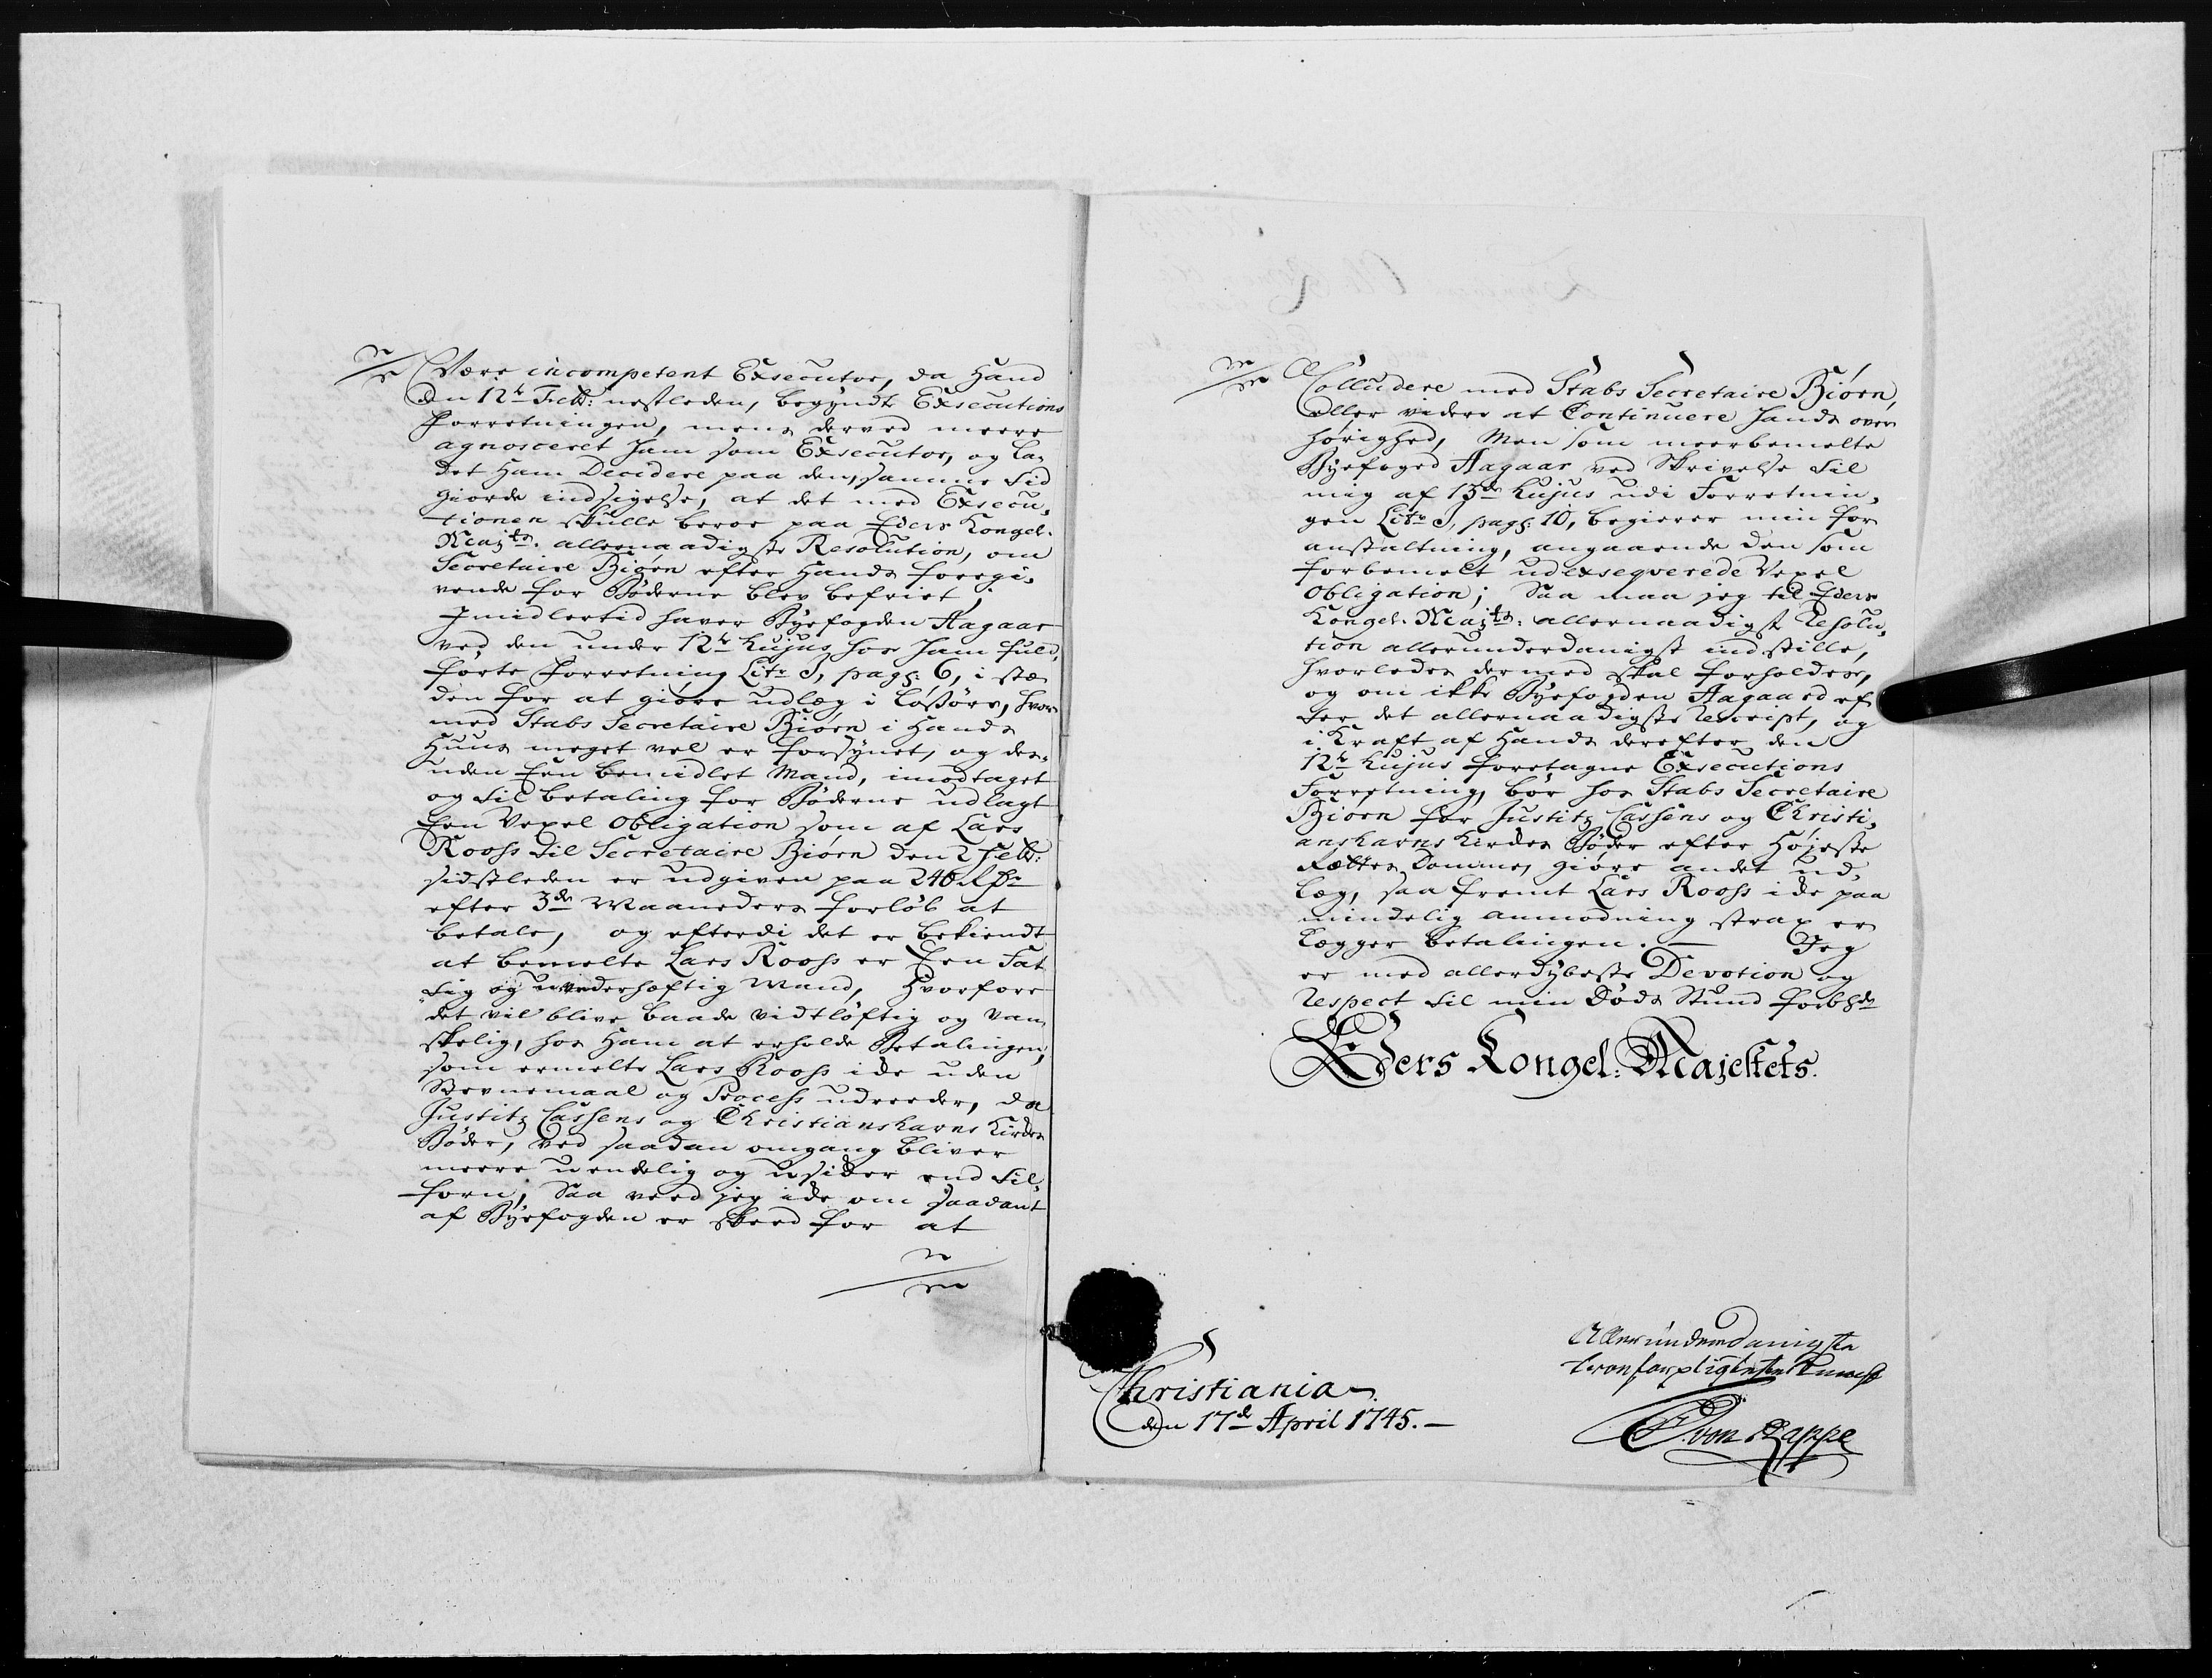 Være incompetent Exsecutor, da Hand
den 12te Febr: nestleden, begyndte Exsecutions
Forretningen, mens derved meere
agnosceret ham som Exsecutor, og la-
det Ham Decidere paa den, samme tid
giorde indsigelse, at det med Exsecu-
tionen skulle beroe paa Eders Kongel.
Majts. allernaadigste Resolution, om
Secretaire Biørn efter Hands foregi-
vende for Bøderne blev befriet;
Imidlertid haver Byefogden Aagaar
ved den under 12te hujus hos ham fuld-
førte Forretning Litr J, pag: 6, i stæ-
den for at giøre udlæg i Løsøre, hvor-
med Stabs Secretaire Biørn i Hands
Huus meget vel er forsynet, og des-
uden Een bemidlet Mand, imodtaget
og til betaling for Bøderne udlagt
Een Vexel Obligation som af Lars
Rooss til Secretaire Biørn den 2 Febr:
sidstleden er udgiven paa 240 Rdr
efter 3de Maaneders forløb at
betale, og efterdi det er bekiendt
at bemelte Lars Rooss er Een Fat-
tig og uvederhæftig Mand, Hvorfore
det vil blive baade vidtløftig og van-
skelig, hos Ham at erholde Betalingen,
som ermelte Lars Rooss icke uden
Stevnemaal og Process udreeder, da
Justitz Cassens og Christianshavns Kirkes
Bøder, ved saadan omgang bliver
meere uendelig og usikker end til-
forn, Saa veed jeg icke om saadant
af Byefogden er skeed for at
Colludere med Stabs Secretaire Biørn,
eller videre at Continuere hands over-
hørighed, Men som meerbemelte
Byefoged Aagaar ved Skrivelse til
mig af 13de hujus udi Forretnin-
gen Litr J, pag: 10, begierer min for-
anstaltning, angaaende den som
forbemelt udexseqverede Vexel
Obligation; Saa maa jeg til Eders
Kongel. Majts: allernaadigst Resolu-
tion allerunderdanigst indstille,
hvorledes dermed skal forholdes,
og om ikke Byefogden Aagaard ef-
ter det allernaadigste Rescript, og
i Kraft af Hands derefter den
12te hujus foretagne Exsecutions
Forretning, bør hos Stabs Secretaire
Biørn for Justitz Cassens og Christi-
anshavns Kirkes Bøder efter Høieste
Rættes Domme, giøre andet ud-
læg, saa fremt Lars Rooss icke paa
mindelig anmodning strax er-
lægger betalingen. — Jeg
er med allerdybeste Devotion og
respect til min Døds Stund
Eders Kongel: Majestets.
Allerunderdanigste
Christiania
den 17de April 1745. —
von Rappe